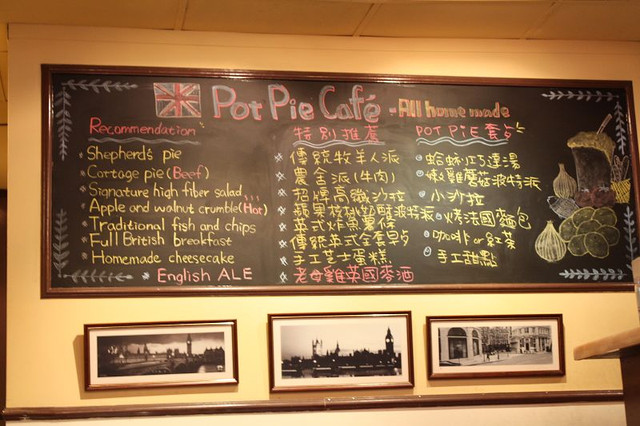 Pot Pie Café - All home made
Recommendation
Shepherd's pie
Cottage pie (Beef)
Signature high fiber salad
Apple and walnut crumble (Hot)
Traditional fish and chips
Full British breakfast
Homemade cheesecake
English ALE
特別推薦
傳統牧羊人派
農舍派(牛肉)
招牌高纖沙拉
蘋果核桃奶酥波特派
英式炸魚薯條
傳統英式全套早夕
手工芝士蛋糕
老母雞英國麥酒
POT PIE 套夕
蛤蜊巧達湯
嫩雞蘑菇波特派
小沙拉
烤法國麵包
咖啡 or 紅茶
手工甜點